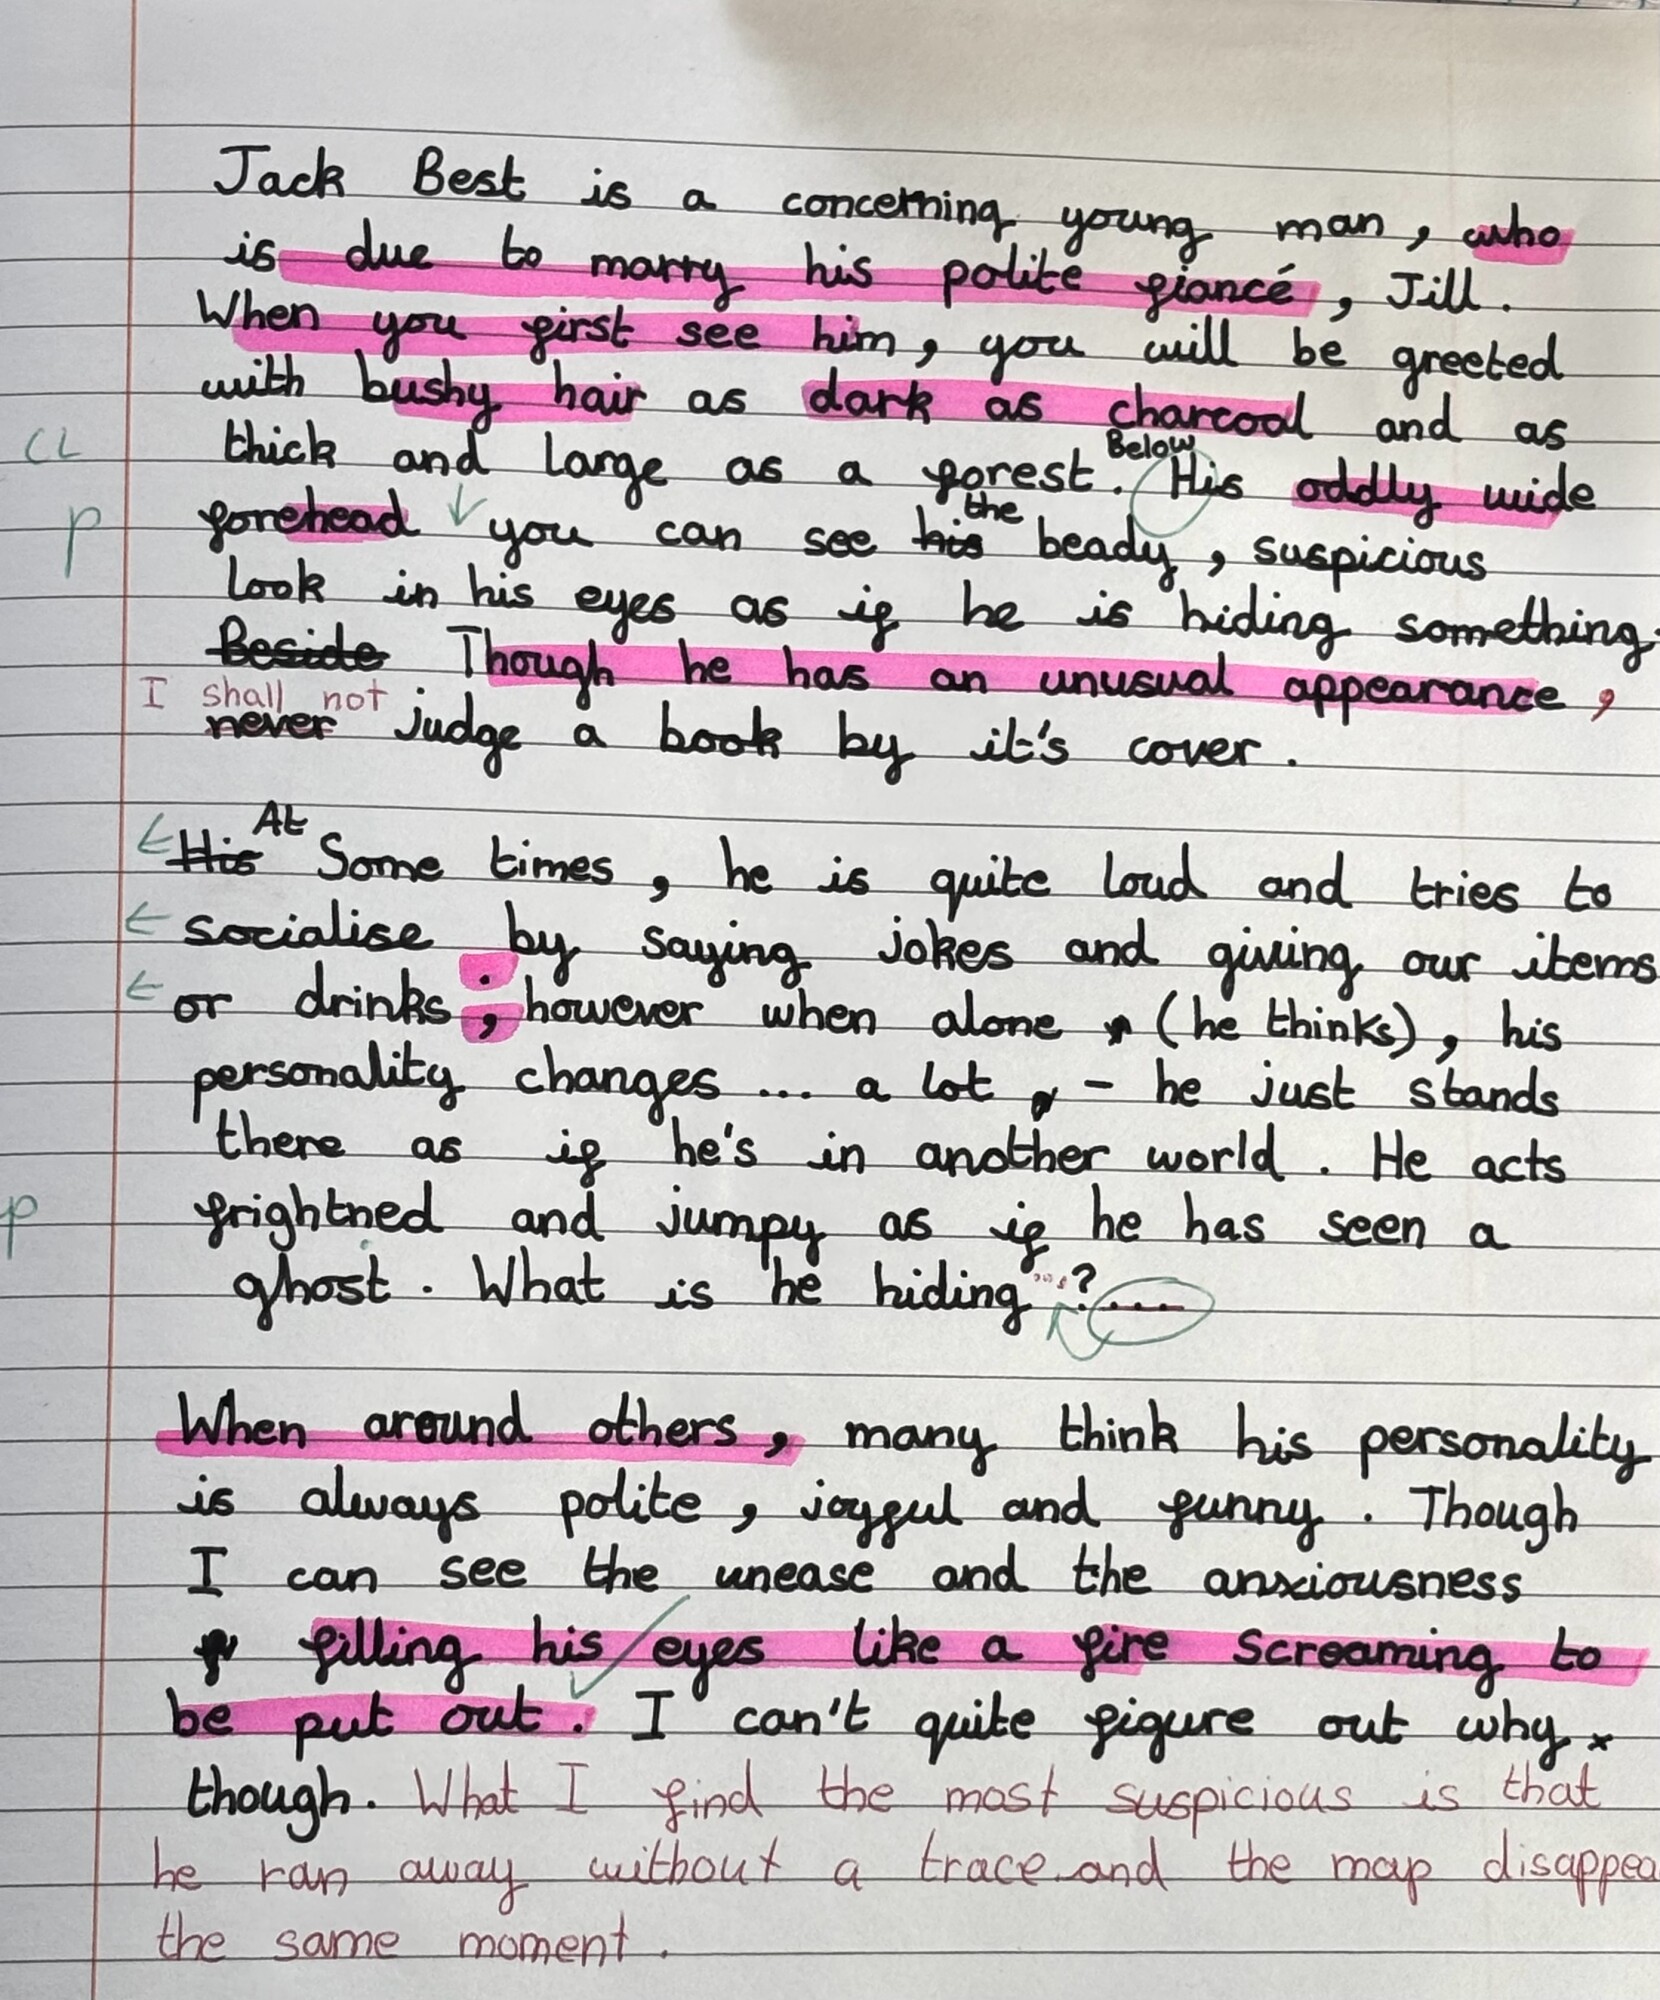 Jack Best is a concerning young man, who
is due to marry his polite fiancé, Jill.
When you first see him, you will be greeted
with bushy hair as dark as charcoal and as
CL thick and large as a forest. Below His oddly wide
P forehead you can see his the beady, suspicious
look in his eyes as if he is hiding something.
Beside Though he has an unusual appearance,
I shall not
never judge a book by it's cover.
His At Some times, he is quite loud and tries to
socialise by saying jokes and giving our items
or drinks; however when alone (he thinks), his
personality changes... a lot - he just stands
there as if he's in another world. He acts
P frightned and jumpy as if he has seen a
ghost. What is he hiding...?....
When around others, many think his personality
is always polite, joyful and funny. Though
I can see the unease and the anxiousness
filling his eyes like a fire screaming to
be put out. I can't quite figure out why
though. What I find the most suspicious is that
he ran away without a trace and the map disappea
the same moment.